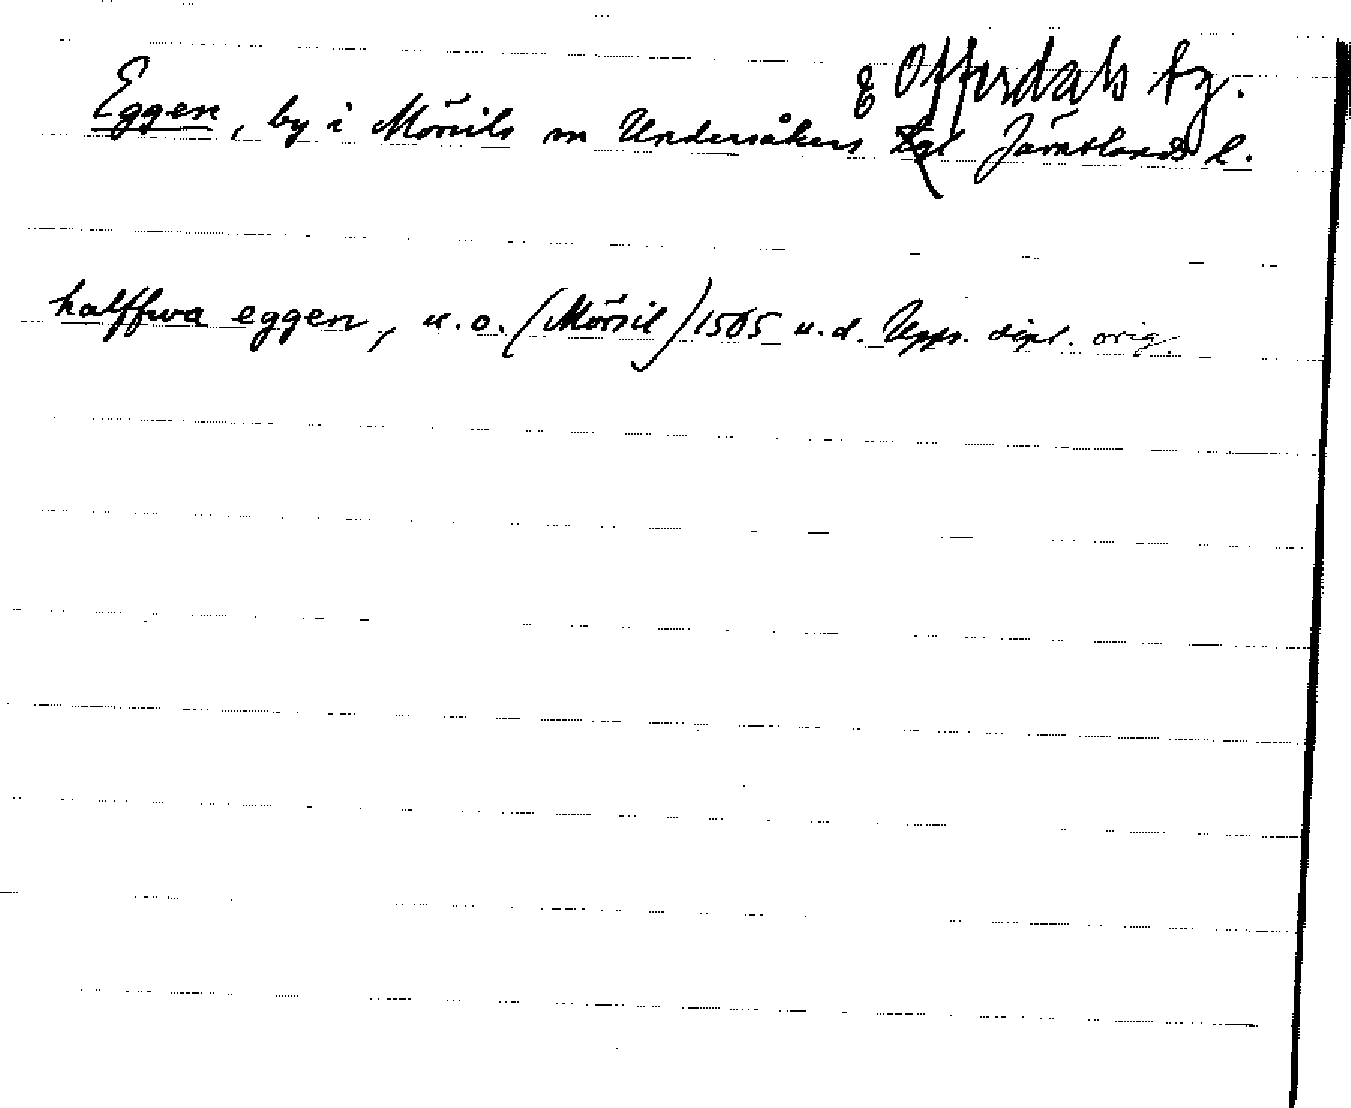 & Offerdals tg.
Eggen, by i Mörsils sn Undersåkers tgl Jämtlands l.
halffwa eggen, u.o. (Mörsil) 1565 u.d. Upps. dipl. orig.